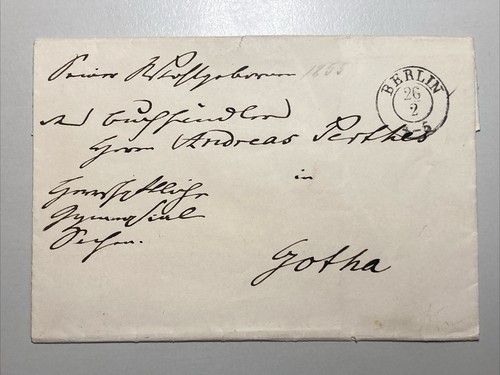 Seiner Wohlgeboren 1855
BERLIN
26
2
-5
Buchhändler
Herrn Andreas Perthes
in
Herrschaftliche
Gymnasial
Sachen.
Gotha